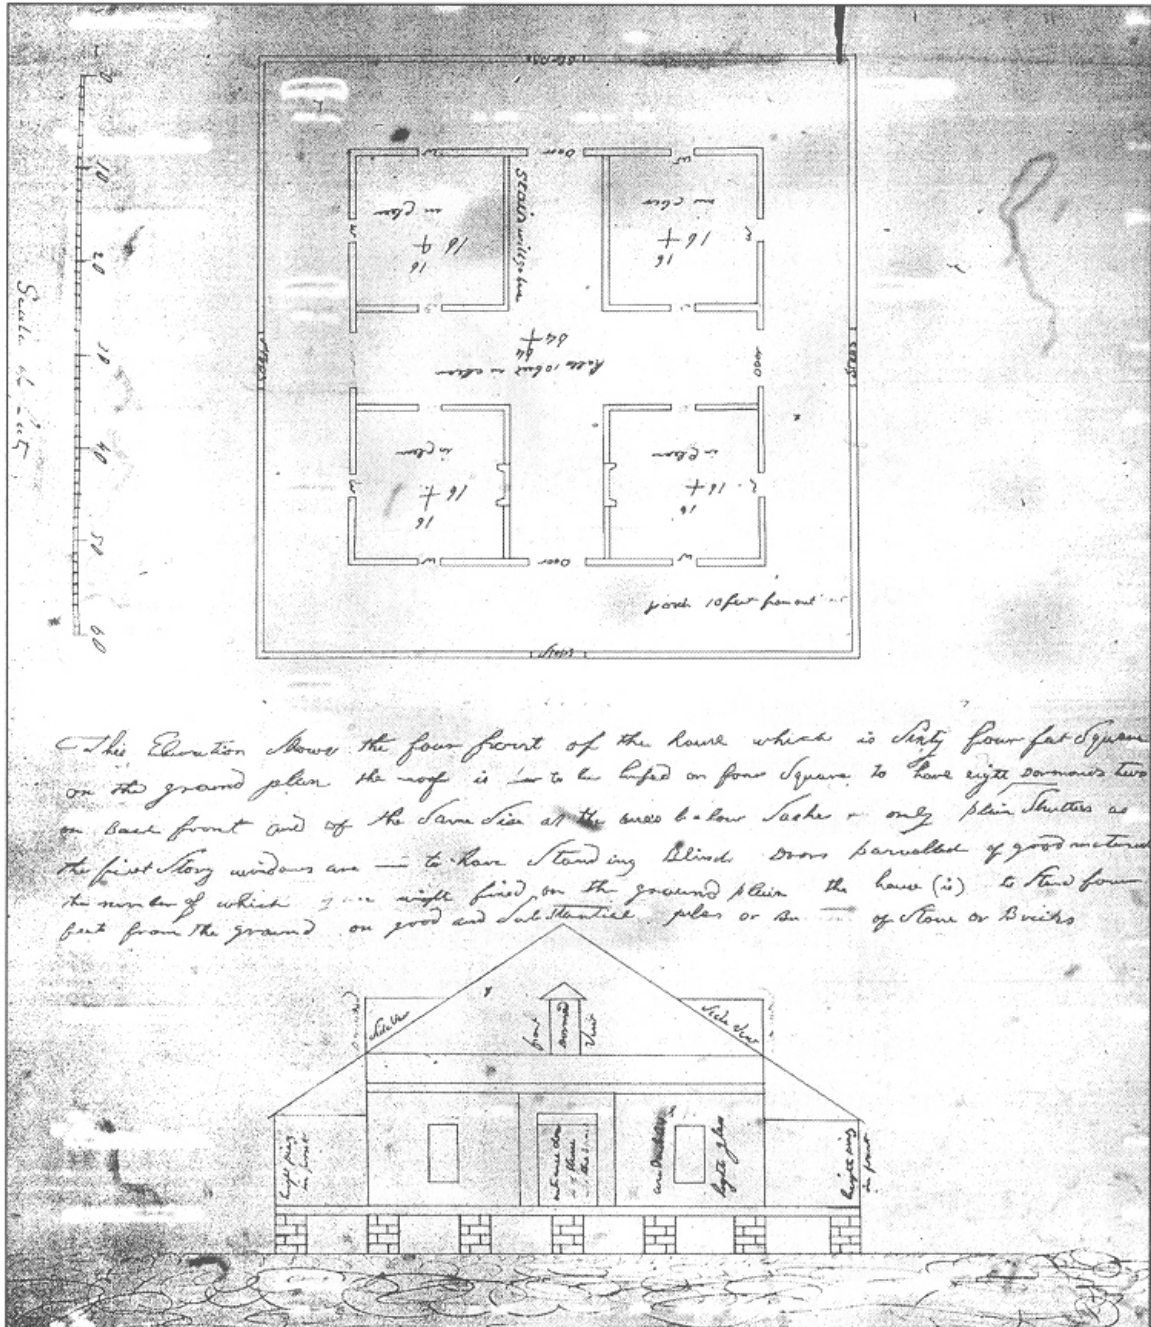 Steps
0
10
20
30
40
50
60
Scale of feet
W
Door
W
in clear
16
16
Stairs
in clear
16
16
W
W
Halls 10 feet in clear
64
64
Steps
Door
Steps
in clear
16
16
in clear
16
16
W
W
Door
W
porch 10 feet from out
Steps
This Elevation Shows the four front of the house which is Sixty four feet Square
on the ground plan the roof is to be hipped on four Square to have eight Dormands two
on Each front and of the Same Size as the ones below Sashes only plain Shutters as
the first Story windows are to have Standing Blinds Doors parralled of good material
the number of which eight fixed on the ground plain the house (is) to Stand four
feet from the ground on good and Substantial piles or of Stone or Bricks
Side View
front
Dormand
View
Side View
height
in front
entrance door
lights glass
height
in front